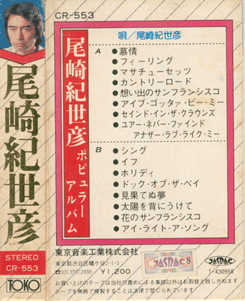 CR-553
尾崎紀世彦
STEREO
CR-553
TOKO
尾崎紀世彦
ポピュラー
アルバム
唄/尾崎紀世彦
A
●慕情
●フィーリング
●マサチューセッツ
●カントリーロード
●想い出のサンフランシスコ
●アイブ・ゴッタ・ビー・ミー
●セイルド・イン・ザ・クラウンズ
●ユアー・ネバー・ファインド
アナザー・ラブ・ライク・ミー
B
●シング
●イフ
●ホリディ
●ドック・オブ・ザ・ベイ
●見果てぬ夢
●太陽を背にうけて
●花のサンフランシスコ
●アイ・ライト・ア・ソング
東京音楽工業株式会社
¥1,200
JASRAC
T-430958